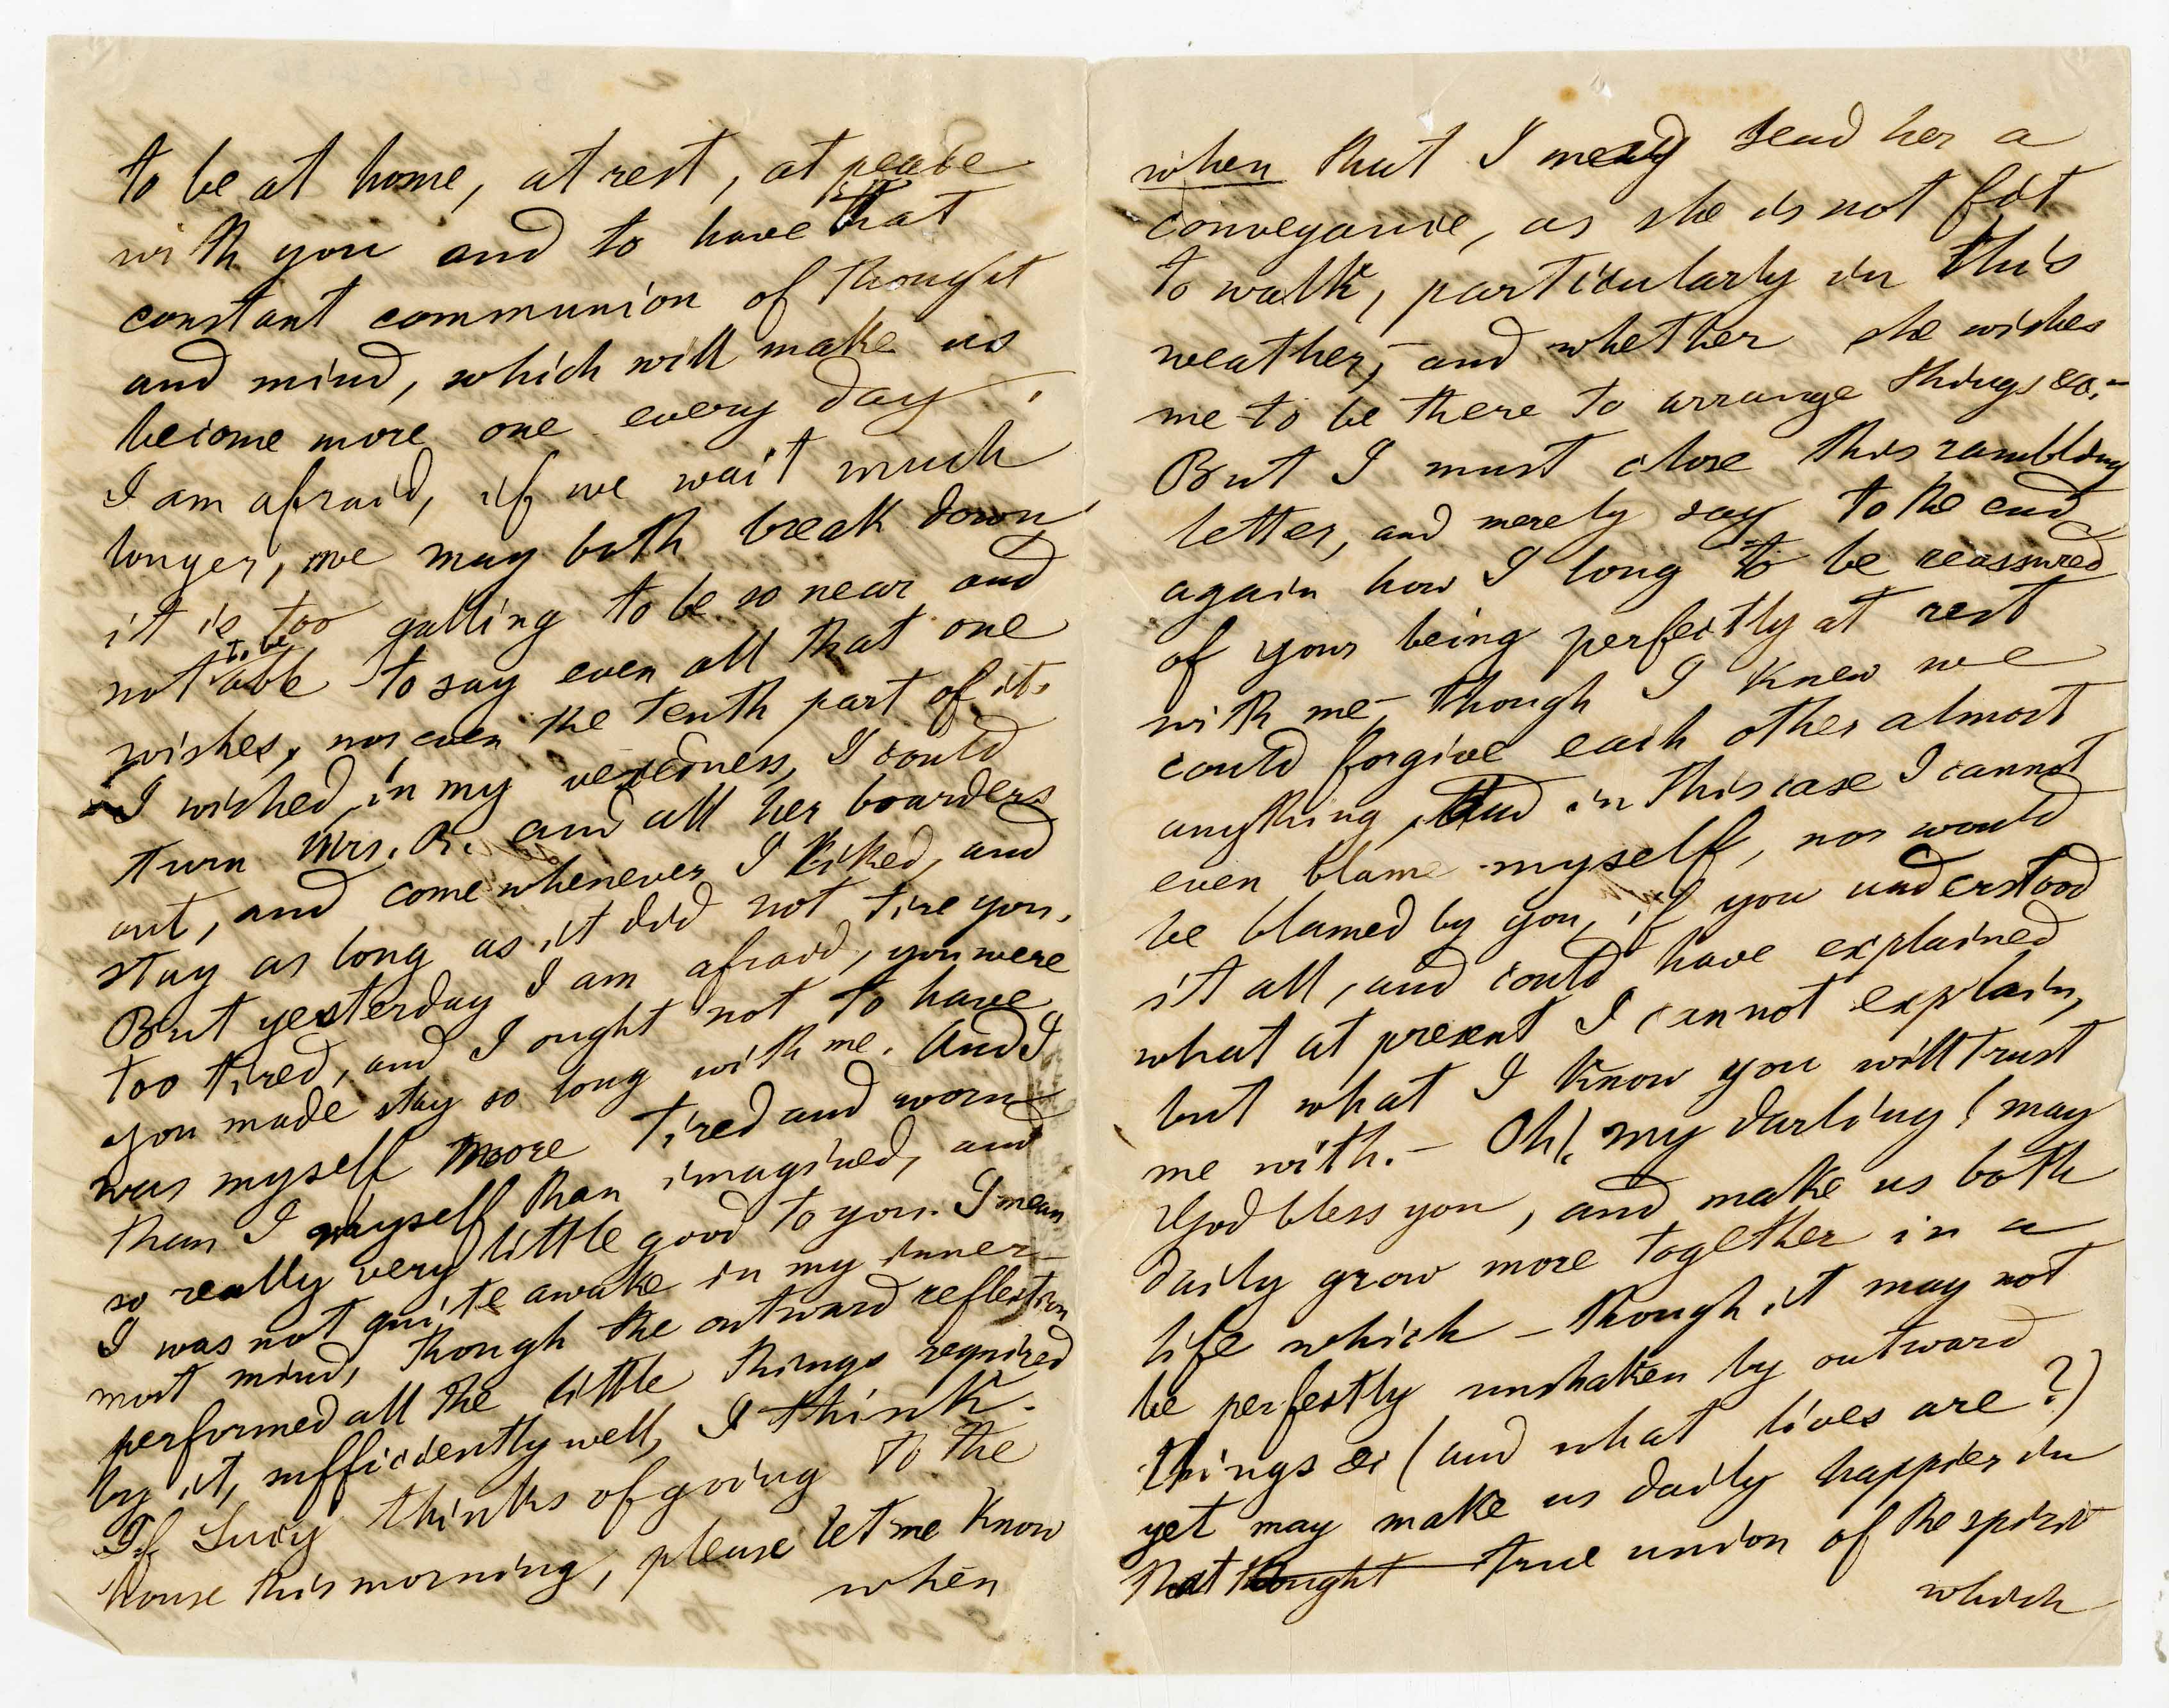 to be at home, at rest, at peace
with you and to have that
constant communion of thought
and mind, which will make us
become more one every day.
I am afraid, if we wait much
longer, we may both break down,
it is too galling to be so near and
not to be able to say even all that one
wishes, nor even the tenth part of it.
I wished, in my vexedness, I could
turn Mrs. R. and all her boarders
out, and come whenever I liked, and
stay as long as it did not tire you.
But yesterday I am afraid, you were
too tired, and I ought not to have
you made stay so long with me. And I
was myself more tired and worn
than I myself than imagined, and
so really very little good to you. I mean
I was not quite awake in my inner
most mind, though the outward reflection
performed all the little things required
by it, sufficiently well, I think.
If Lucy thinks of going to the
house this morning, please let me know
when
when that I may send her a
conveyance, as she is not fit
to walk, particularly in this
weather, – and whether she wishes
me to be there to arrange things &c. –
But I must close this rambling
letter, and merely say to the end
again how I long to be reassured
of your being perfectly at rest
with me – though I knew we
could forgive each other almost
anything, And in this case I cannot
even blame myself, nor would
be blamed by you, if you understood
it all, and could have explained
what at present I cannot explain,
but what I know you will trust
me with. – Oh! my darling! may
God bless you, and make us both
daily grow more together in a
life which – though it may not
be perfectly unshaken by outward
things (and what lives are?)
yet may make us daily happier in
that thought true union of the spirit
which